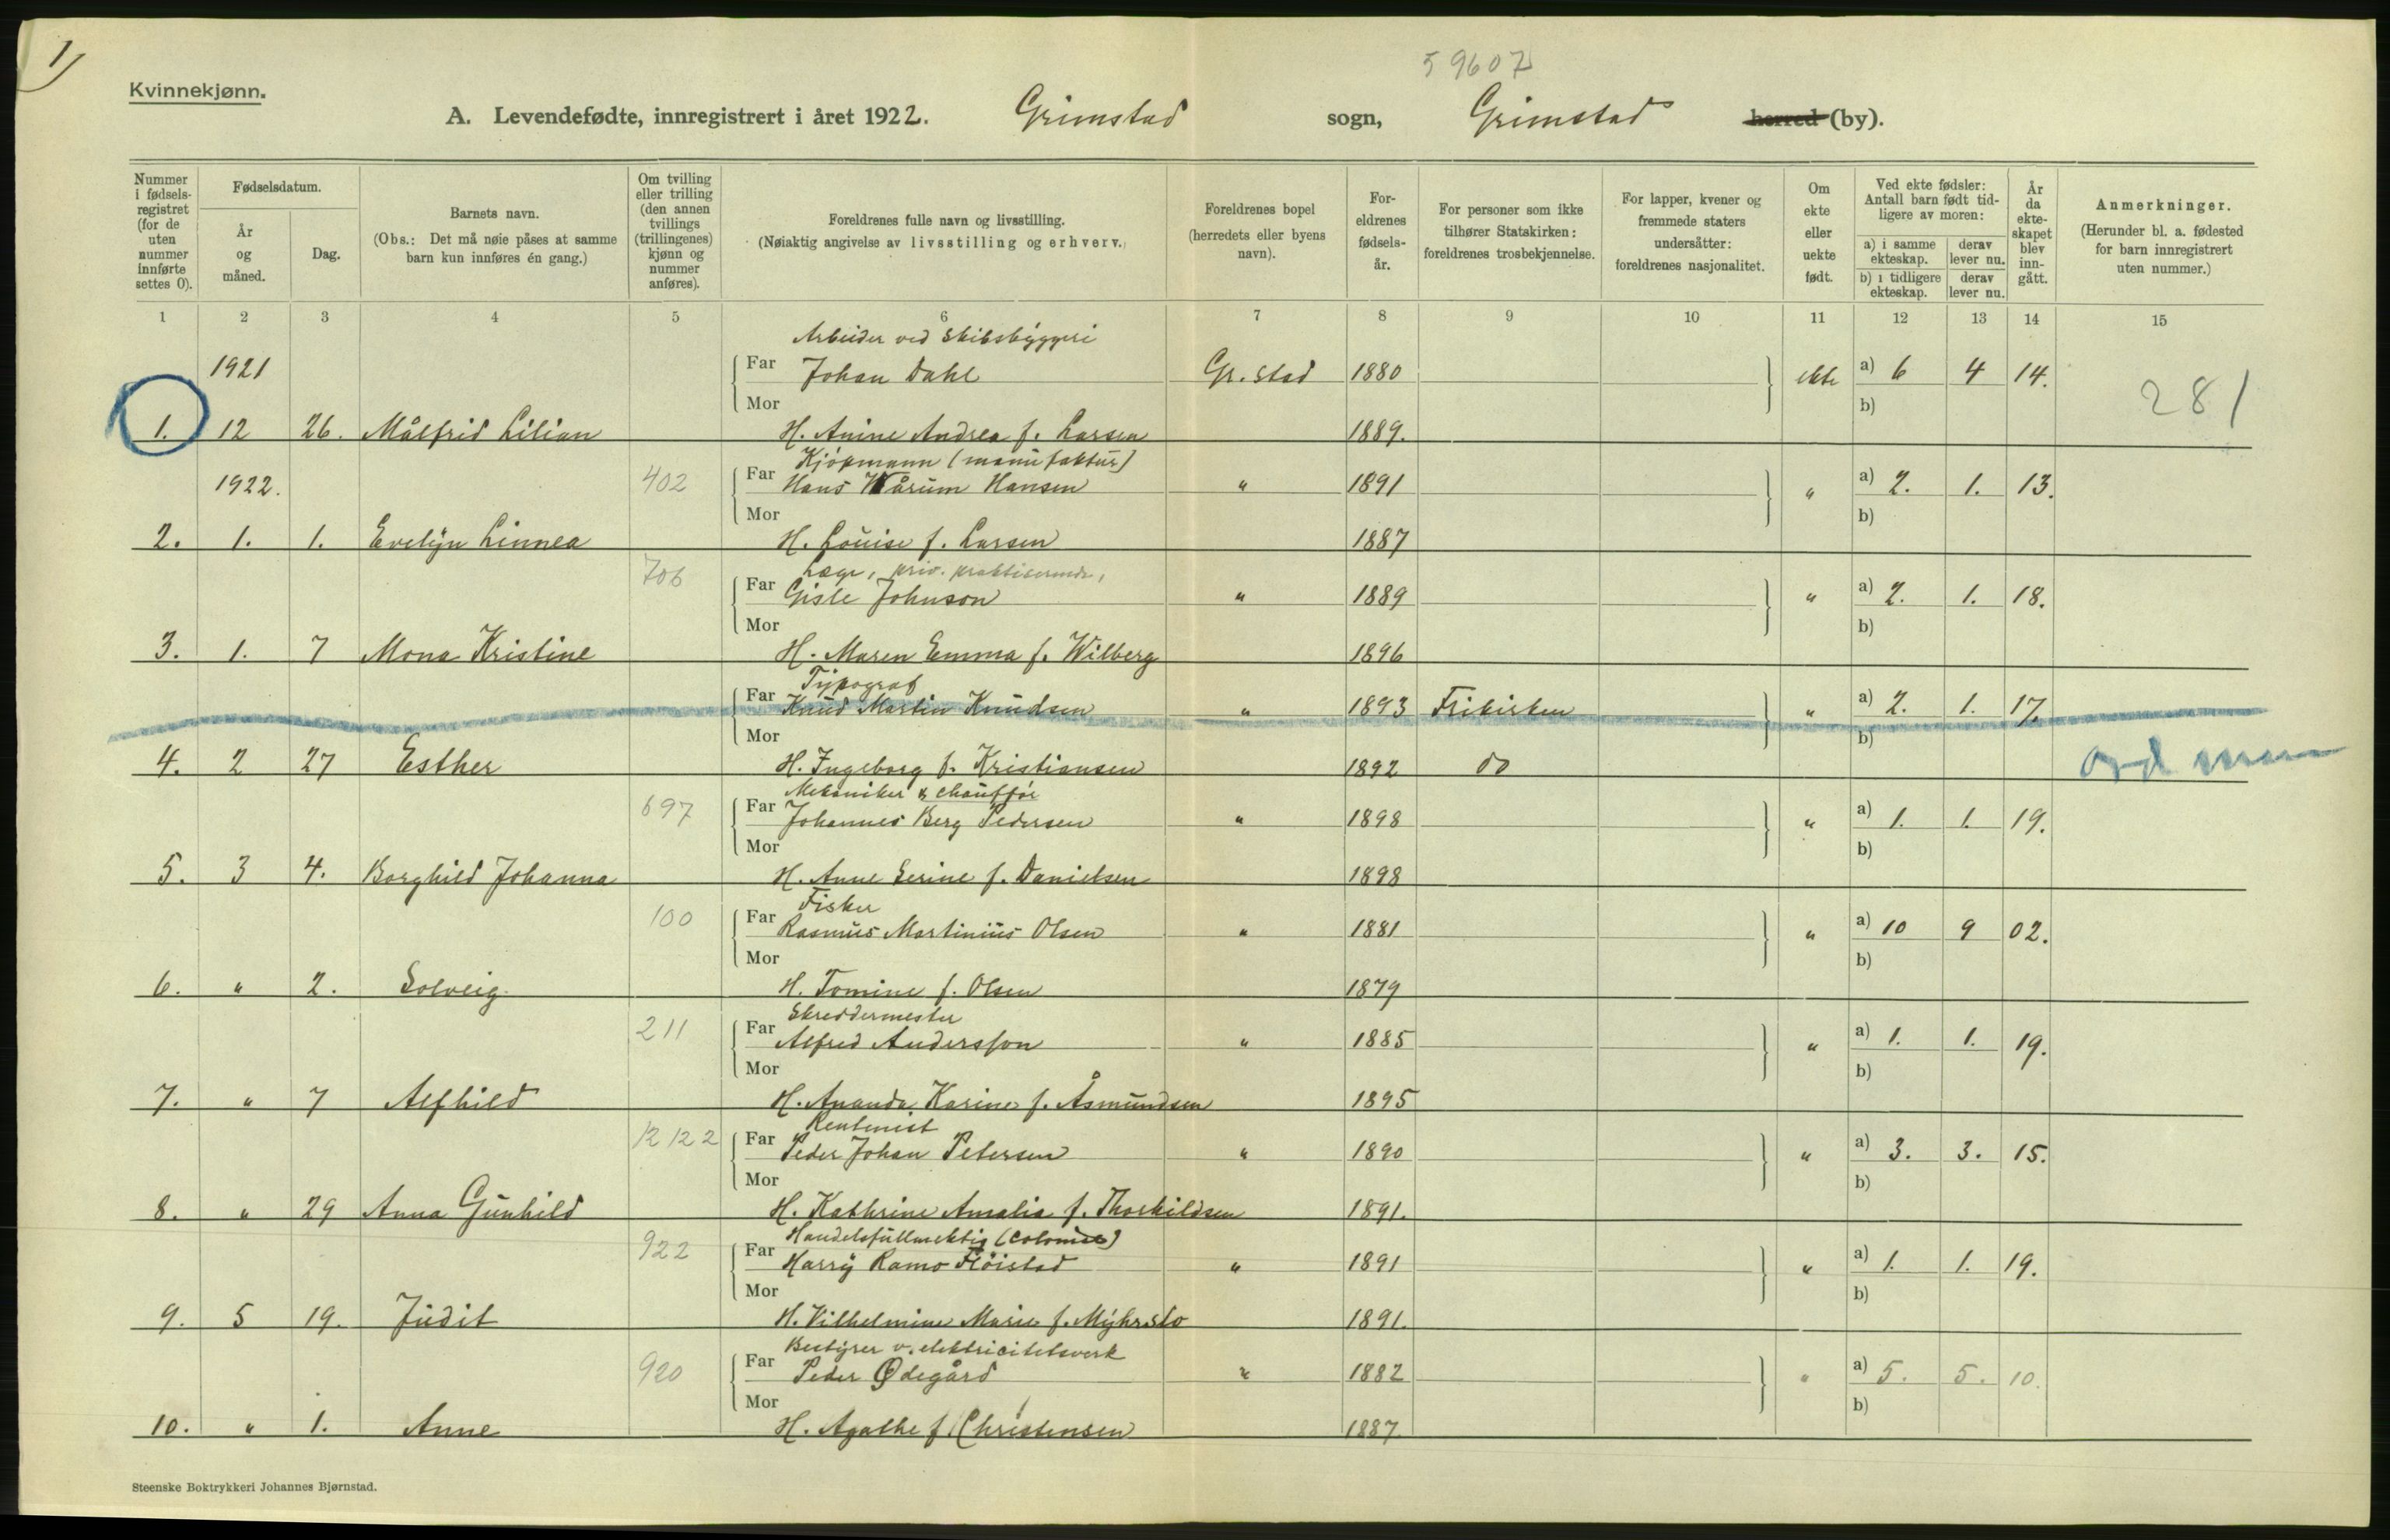 1)
59607
Kvinnekjønn.
A. Levendefødte, innregistrert i året 1922. Grimstad sogn, Grimstad herred (by).
Nummer i fødselsregistret (for de uten nummer innførte settes 0).
Fødselsdatum.
År og måned.
Dag.
Barnets navn.
(Obs.: Det må nøie påses at samme barn kun innføres én gang.)
Om tvilling eller trilling (den annen tvillings (trillingenes) kjønn og nummer anføres).
Foreldrenes fulle navn og livsstilling.
(Nøiaktig angivelse av livsstilling og erhverv.)
Foreldrenes bopel (herredets eller byens navn).
Foreldrenes fødselsår.
For personer som ikke tilhører Statskirken: foreldrenes trosbekjennelse.
For lapper, kvener og fremmede staters undersåtter: foreldrenes nasjonalitet.
Om ekte eller uekte født.
Ved ekte fødsler: Antall barn født tidligere av moren:
a) i samme ekteskap. derav lever nu.
b) i tidligere ekteskap. derav lever nu.
År da ekteskapet blev inngått.
Anmerkninger.
(Herunder bl. a. fødested for barn innregistrert uten nummer.)
1 2 3 4 5 6 7 8 9 10 11 12 13 14 15
Arbeider ved Skibsbyggeri
1921 Far Johan Dahl Gr.stad 1880 ekte a) 6 4 14. 281
Mor b)
1. 12 26. Målfrid Lilian H. Anine Andrea f. Larsen 1889.
Kjøpmann (manufaktur)
1922. 402 Far Hans Wårum Hansen " 1891 " a) 2. 1. 13.
Mor b)
2. 1. 1. Evelyn Linnea H. Louise f. Larsen 1887
Læge, priv. praktiserende,
706 Far Gisle Johnson " 1889 " a) 2. 1. 18.
Mor b)
3. 1. 7 Mona Kristine H. Maren Emma f. Wilberg 1896
Typograf
Far Knud Martin Knudsen " 1893 Frikirken " a) 2. 1. 17.
Mor b)
4. 2 27 Esther H. Ingeborg f. Kristiansen 1892 do
Mekaniker & chauffør
697 Far Johannes Berg Pedersen " 1898 " a) 1. 1. 19.
Mor b)
5. 3 4. Borghild Johanna H. Anne Serine f. Danielsen 1898
Fisker
100 Far Rasmus Martinius Olsen " 1881 " a) 10 9 02.
Mor b)
6. " 2. Solveig H. Tomine f. Olsen 1879
Skreddermester
211 Far Alfred Andersson " 1885 " a) 1. 1. 19.
Mor b)
7. " 7 Alfhild H. Ananda Karine f. Åsmundsen 1895
Rentenist
12 122 Far Peder Johan Petersen " 1890 " a) 3. 3. 15.
Mor b)
8. " 29 Anna Gunhild H. Kathrine Amalia f. Thorkildsen 1891.
Handelsfullmektig
922 Far Harry Ramo Fløistad " 1891 " a) 1. 1. 19.
Mor b)
9. 5 19. Judit H. Vilhelmine Marie f. Myhrsto 1891.
Bestyrer v. elektricitetsverk
920 Far Peder Ødegård " 1882 " a) 5. 5. 10.
Mor b)
10. " 1. Anne H. Agathe f. Christensen 1887
Steenske Boktrykkeri Johannes Bjørnstad.